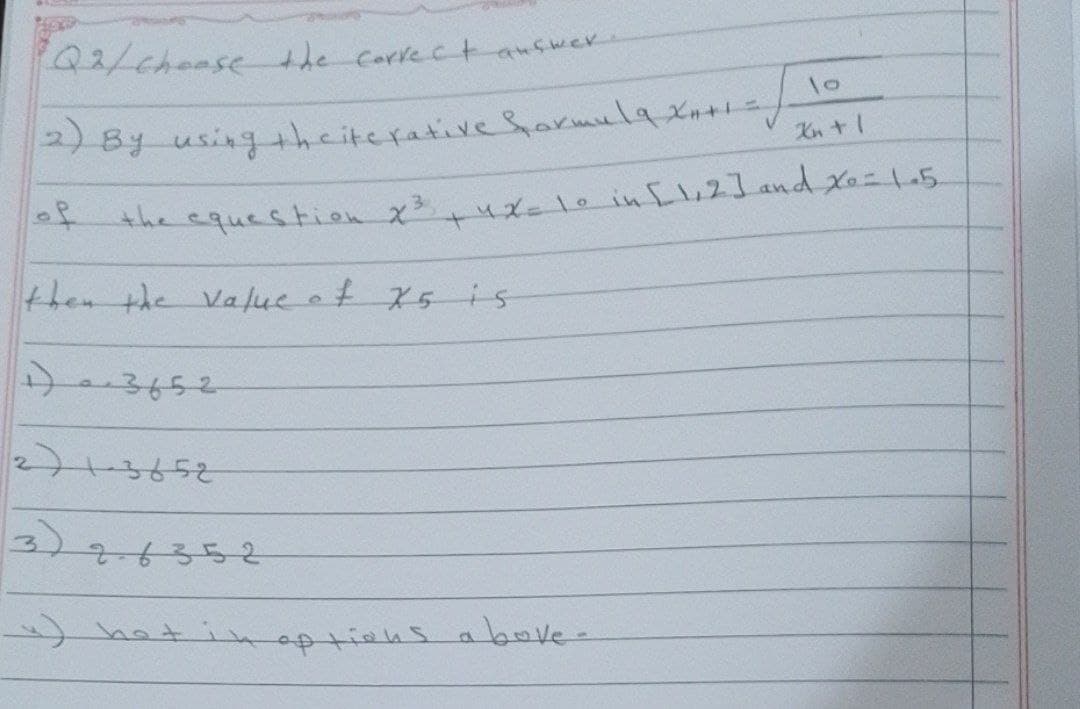 Q2/ choose the correct answer
2) By using the iterative formula xn+1 = √(10/(xn+1))
of the equestion x³ + 4x = 10 in [1,2] and x0 = 1.5
then the value of x5 is
1) 0.3652
2) 1.3652
3) 2.6352
4) not in options above.